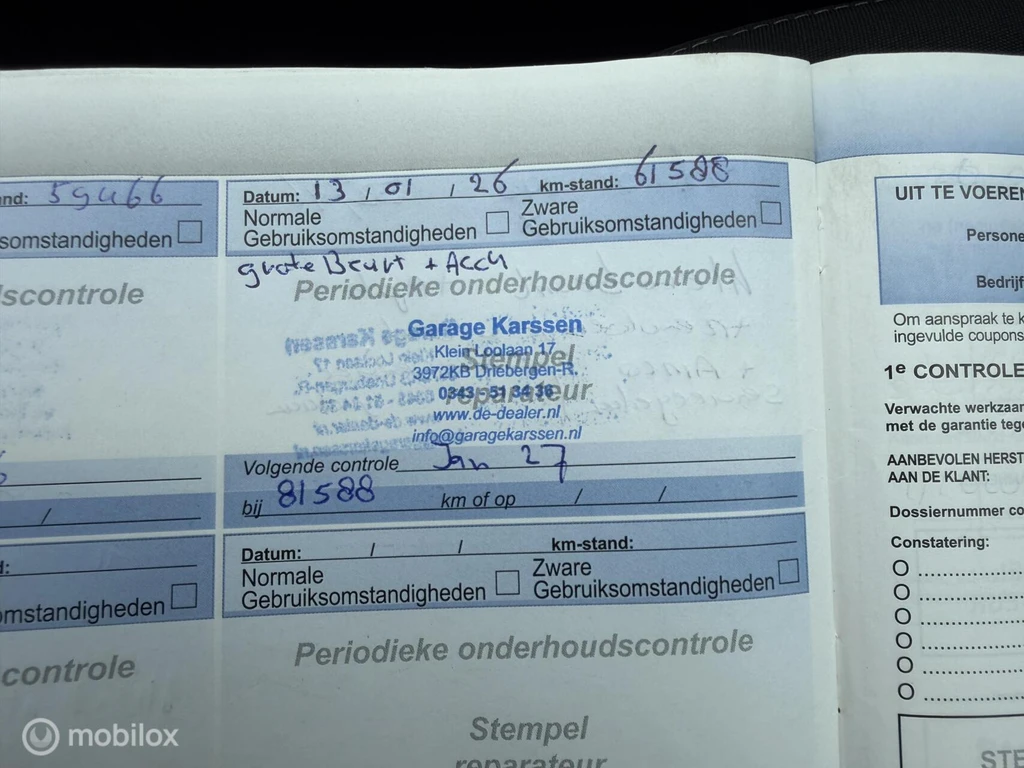 nd: 59466
somstandigheden
scontrole
/
d:
omstandigheden
controle
Datum: 13 / 01 / 26 km-stand: 61588
Normale Gebruiksomstandigheden
Zware Gebruiksomstandigheden
grote Beurt + Acch
Periodieke onderhoudscontrole
Garage Karssen
Klein Loolaan 17
3972KB Driebergen-R.
0343 - 51 34 36
www.de-dealer.nl
info@garagekarssen.nl
Stempel
reparateur
Volgende controle Jan 27
bij 81588 km of op / /
Datum: / / km-stand:
Normale Gebruiksomstandigheden
Zware Gebruiksomstandigheden
Periodieke onderhoudscontrole
Stempel
reparateur
UIT TE VOEREN
Persone
Bedrijf
Om aanspraak te k
ingevulde coupons
1e CONTROLE
Verwachte werkzaam
met de garantie tege
AANBEVOLEN HERST
AAN DE KLANT:
Dossiernummer co
Constatering:
STE
mobilox